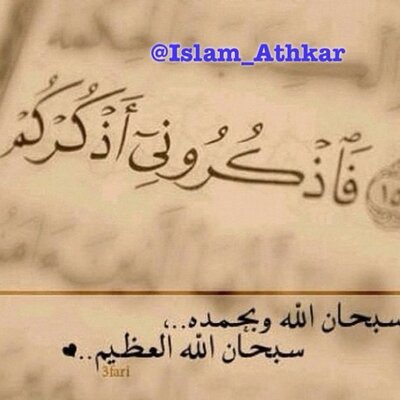 @Islam_Athkar
١٥ فَٱذْكُرُونِىٓ أَذْكُرْكُمْ
سبحان الله وبحمده..،
سبحان الله العظيم..♥
3fari